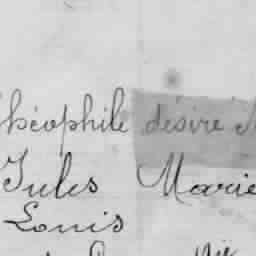 Théophile désire
Jules Marie
Louis